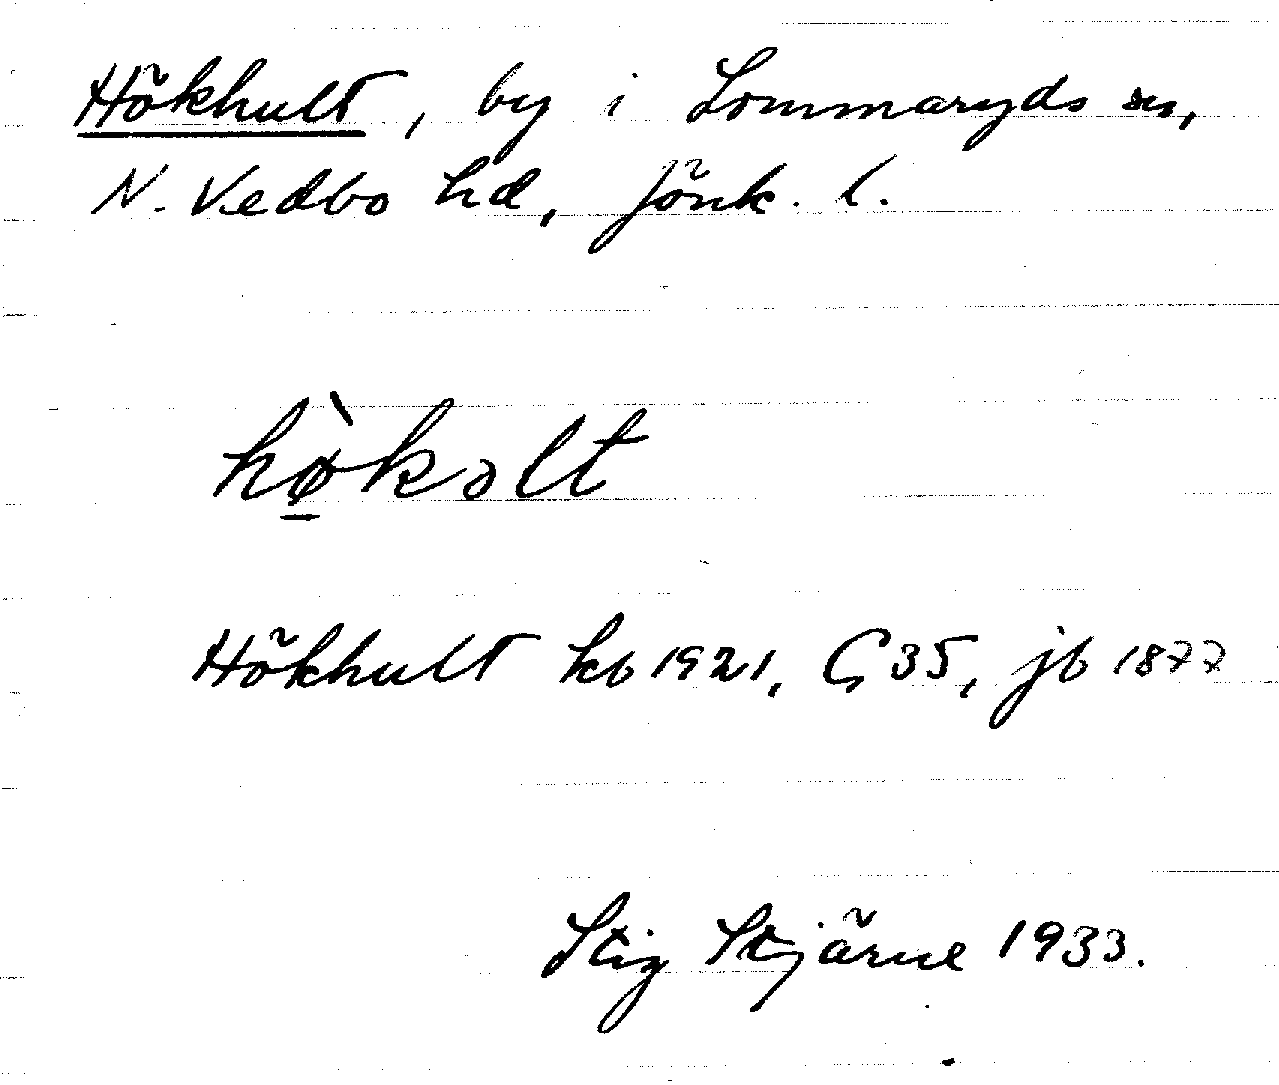 Hökhult, by i Lommaryds sn,
N. Vedbo hd, Jönk. l.
hø̠̀kəlt
Hökhult kb 1921, G 35, jb 1877
Stig Stjärne 1933.